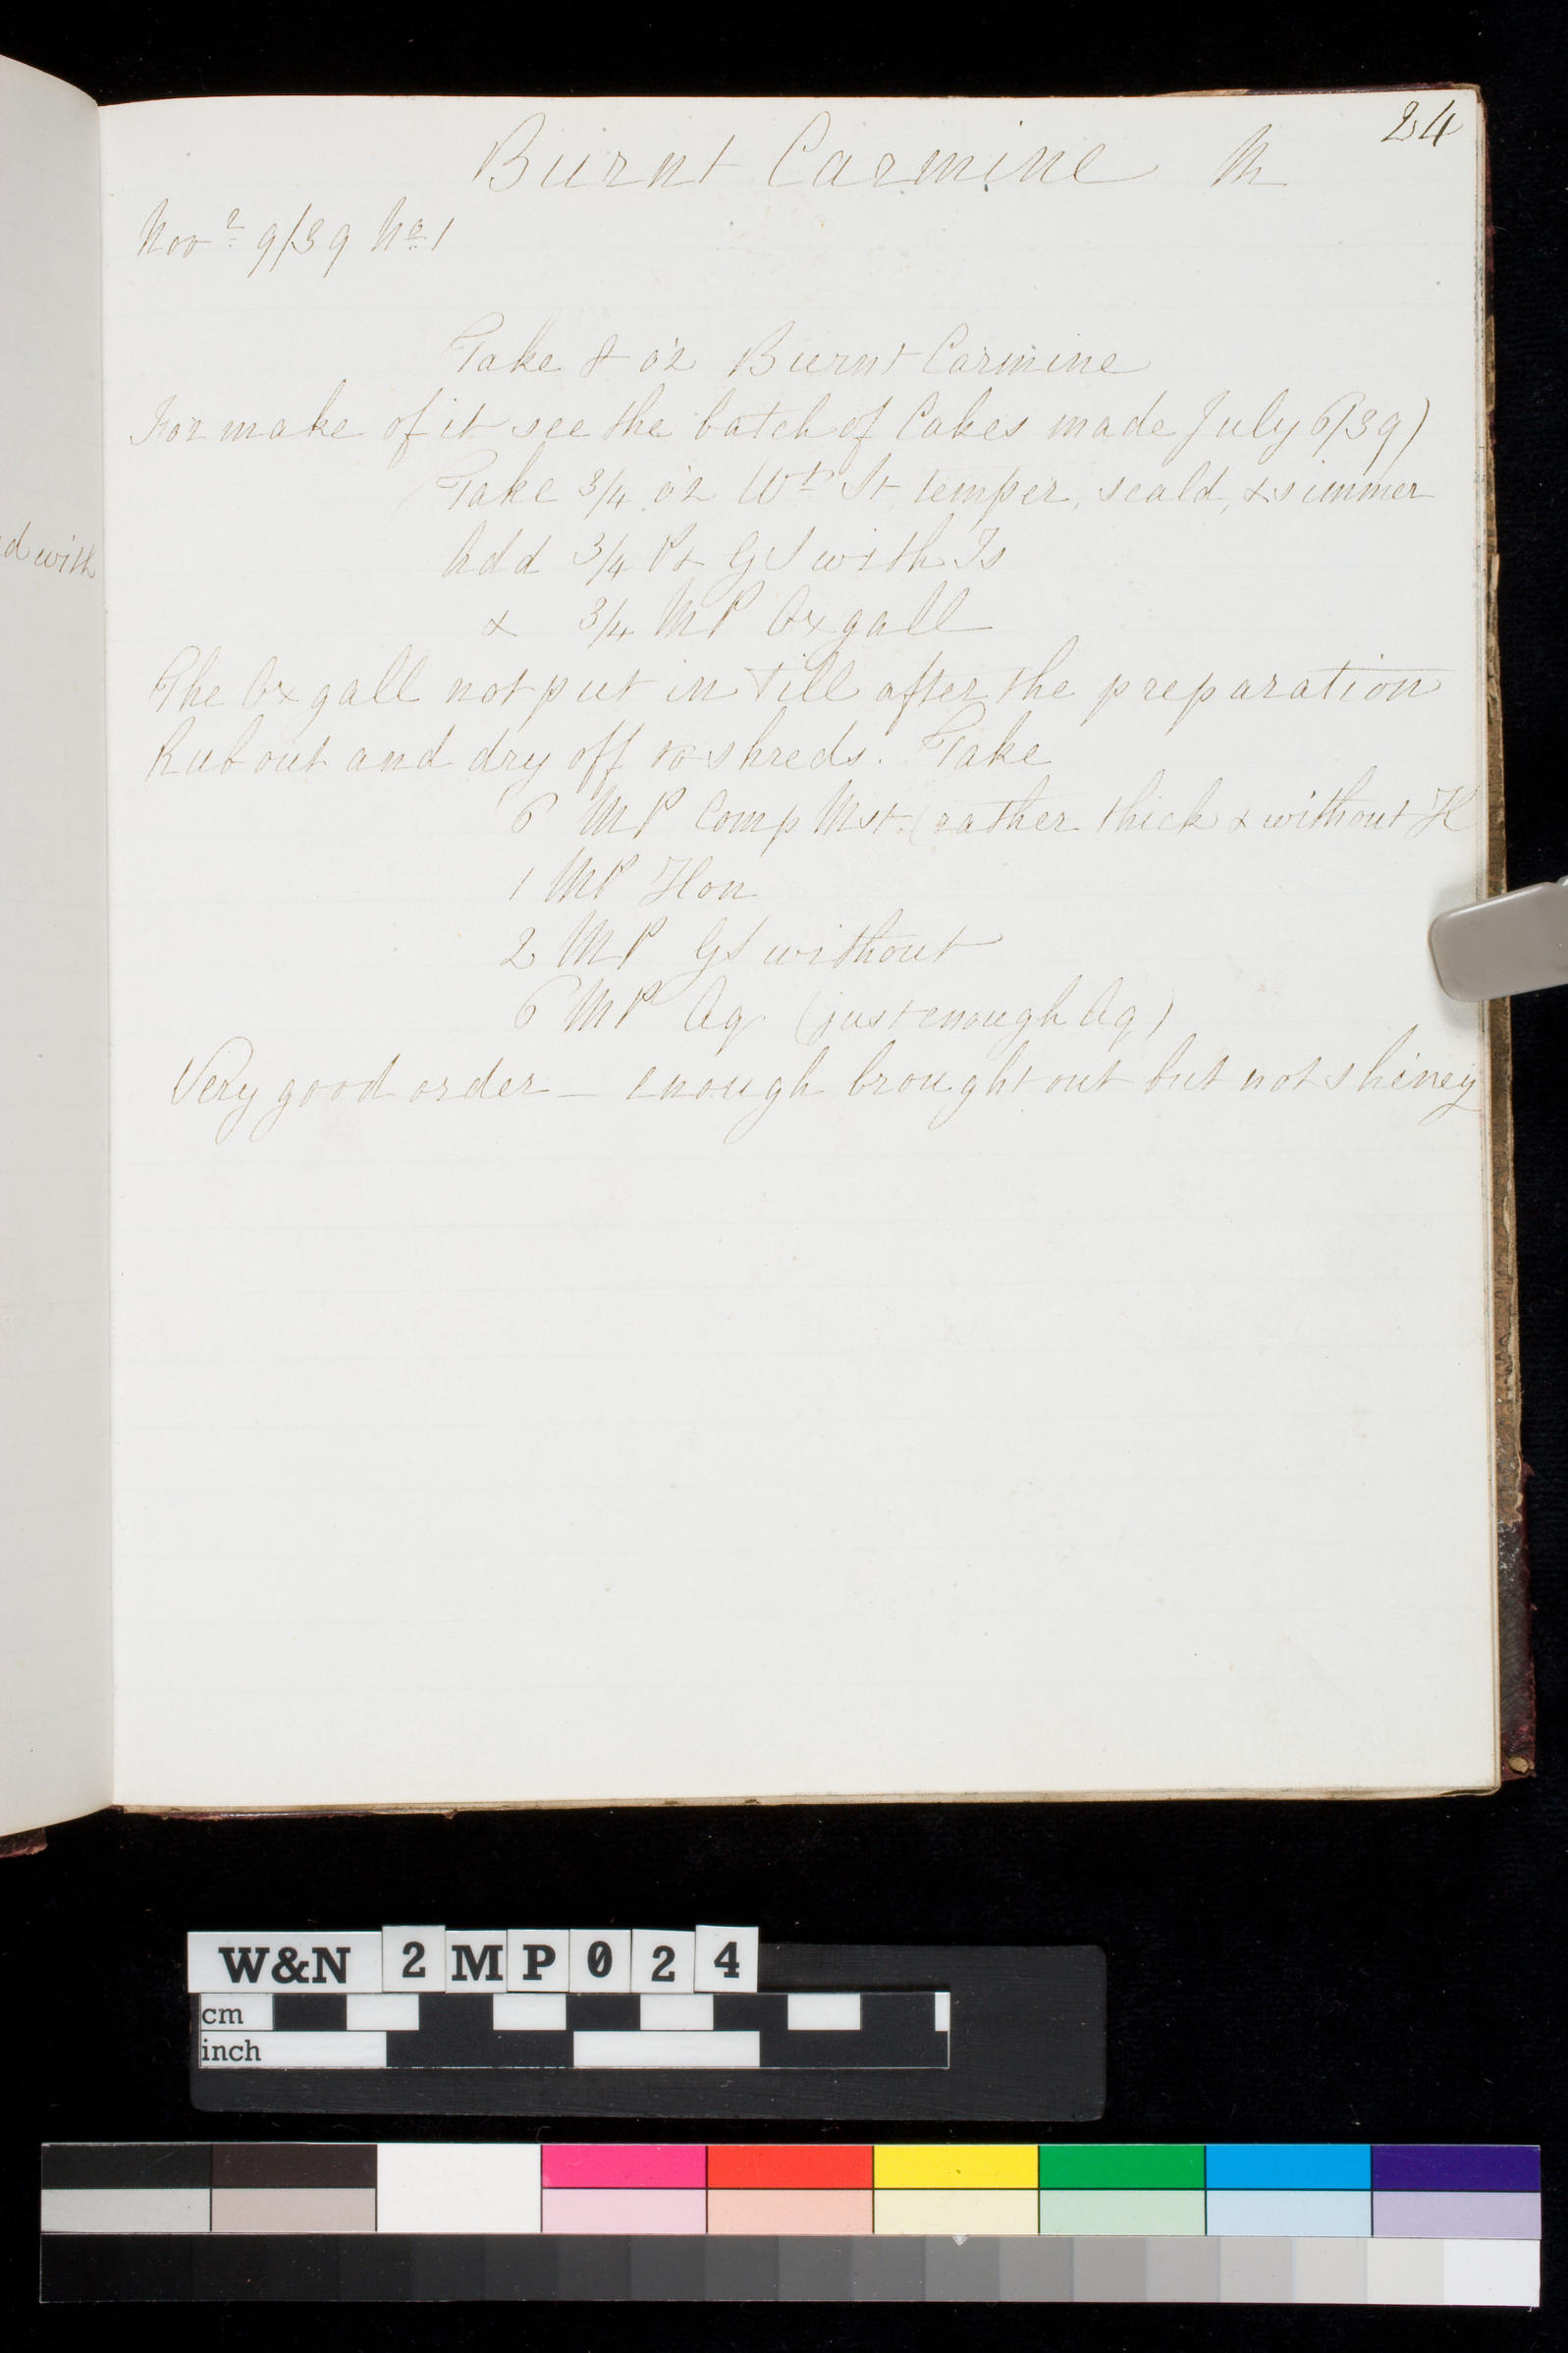 24
Burnt Carmine M
Novr 9/39 No 1
Take 8 oz Burnt Carmine
For make of it see the batch of Cakes made July 6/39)
Take 3/4 oz Wt St temper, scald, & simmer
Add 3/4 Pt GS with Is
& 3/4 MP Ox gall
The Ox gall not put in till after the preparation
Rub out and dry off to shreds. Take
6 MP Comp Mst. (rather thick & without H
1 MP Hon
2 MP GS without
6 MP Aq (just enough Aq)
Very good order — enough brought out but not shiney
d with
W&N 2MP024
cm
inch